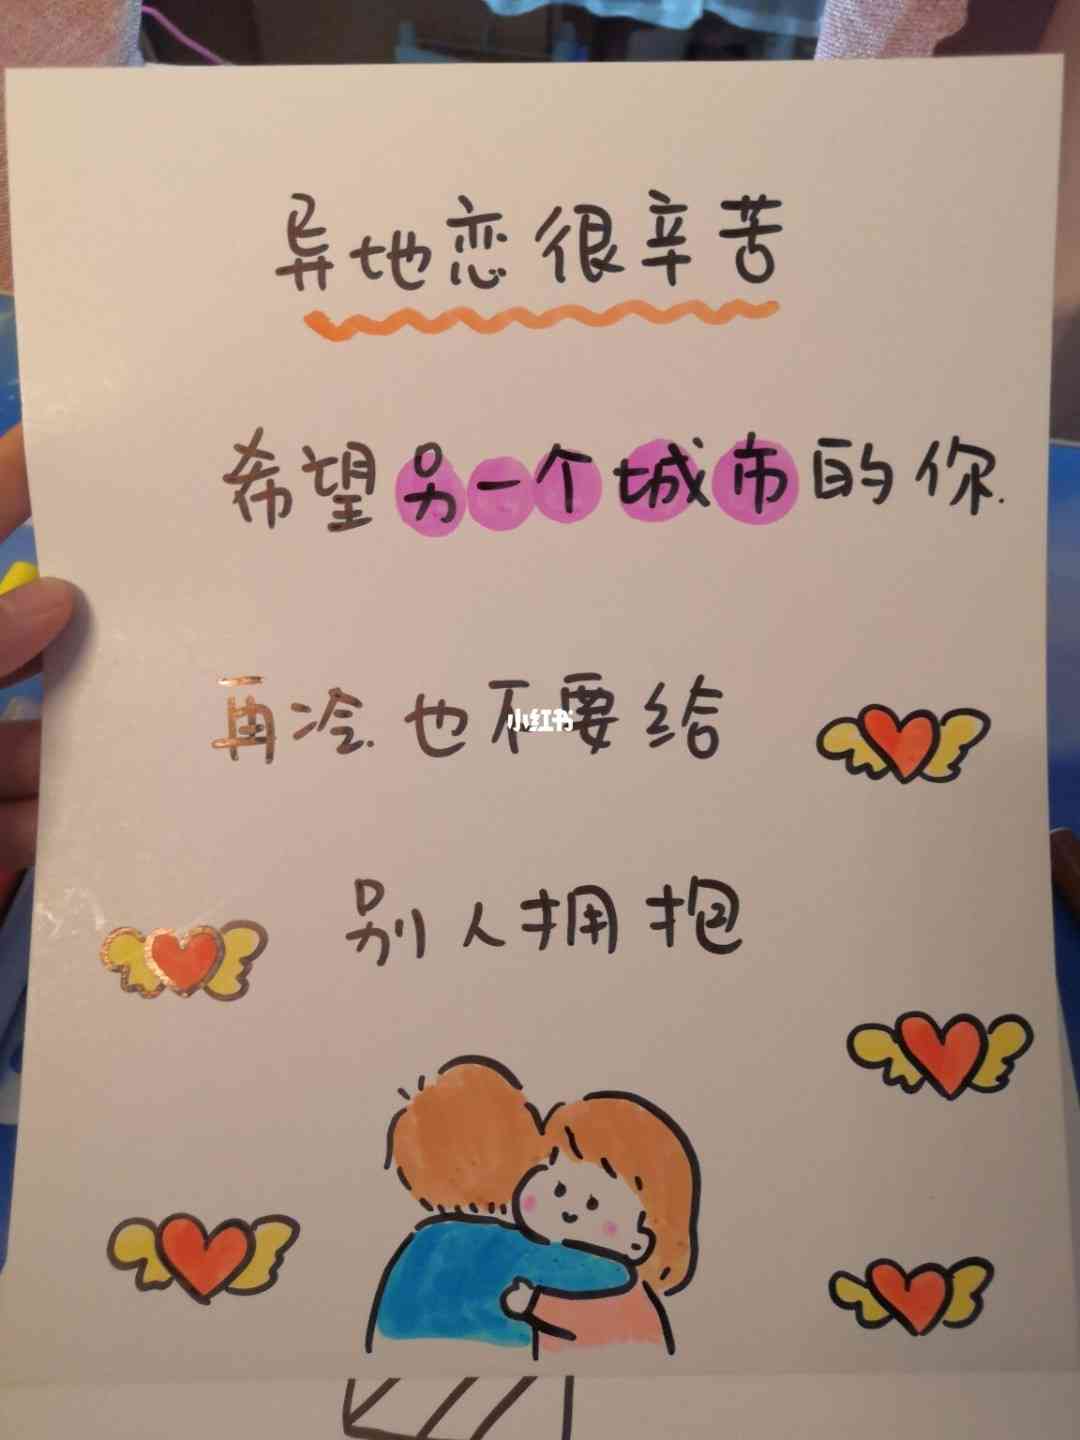 异地恋很辛苦
希望另一个城市的你.
再冷也不要给
小红书
别人拥抱